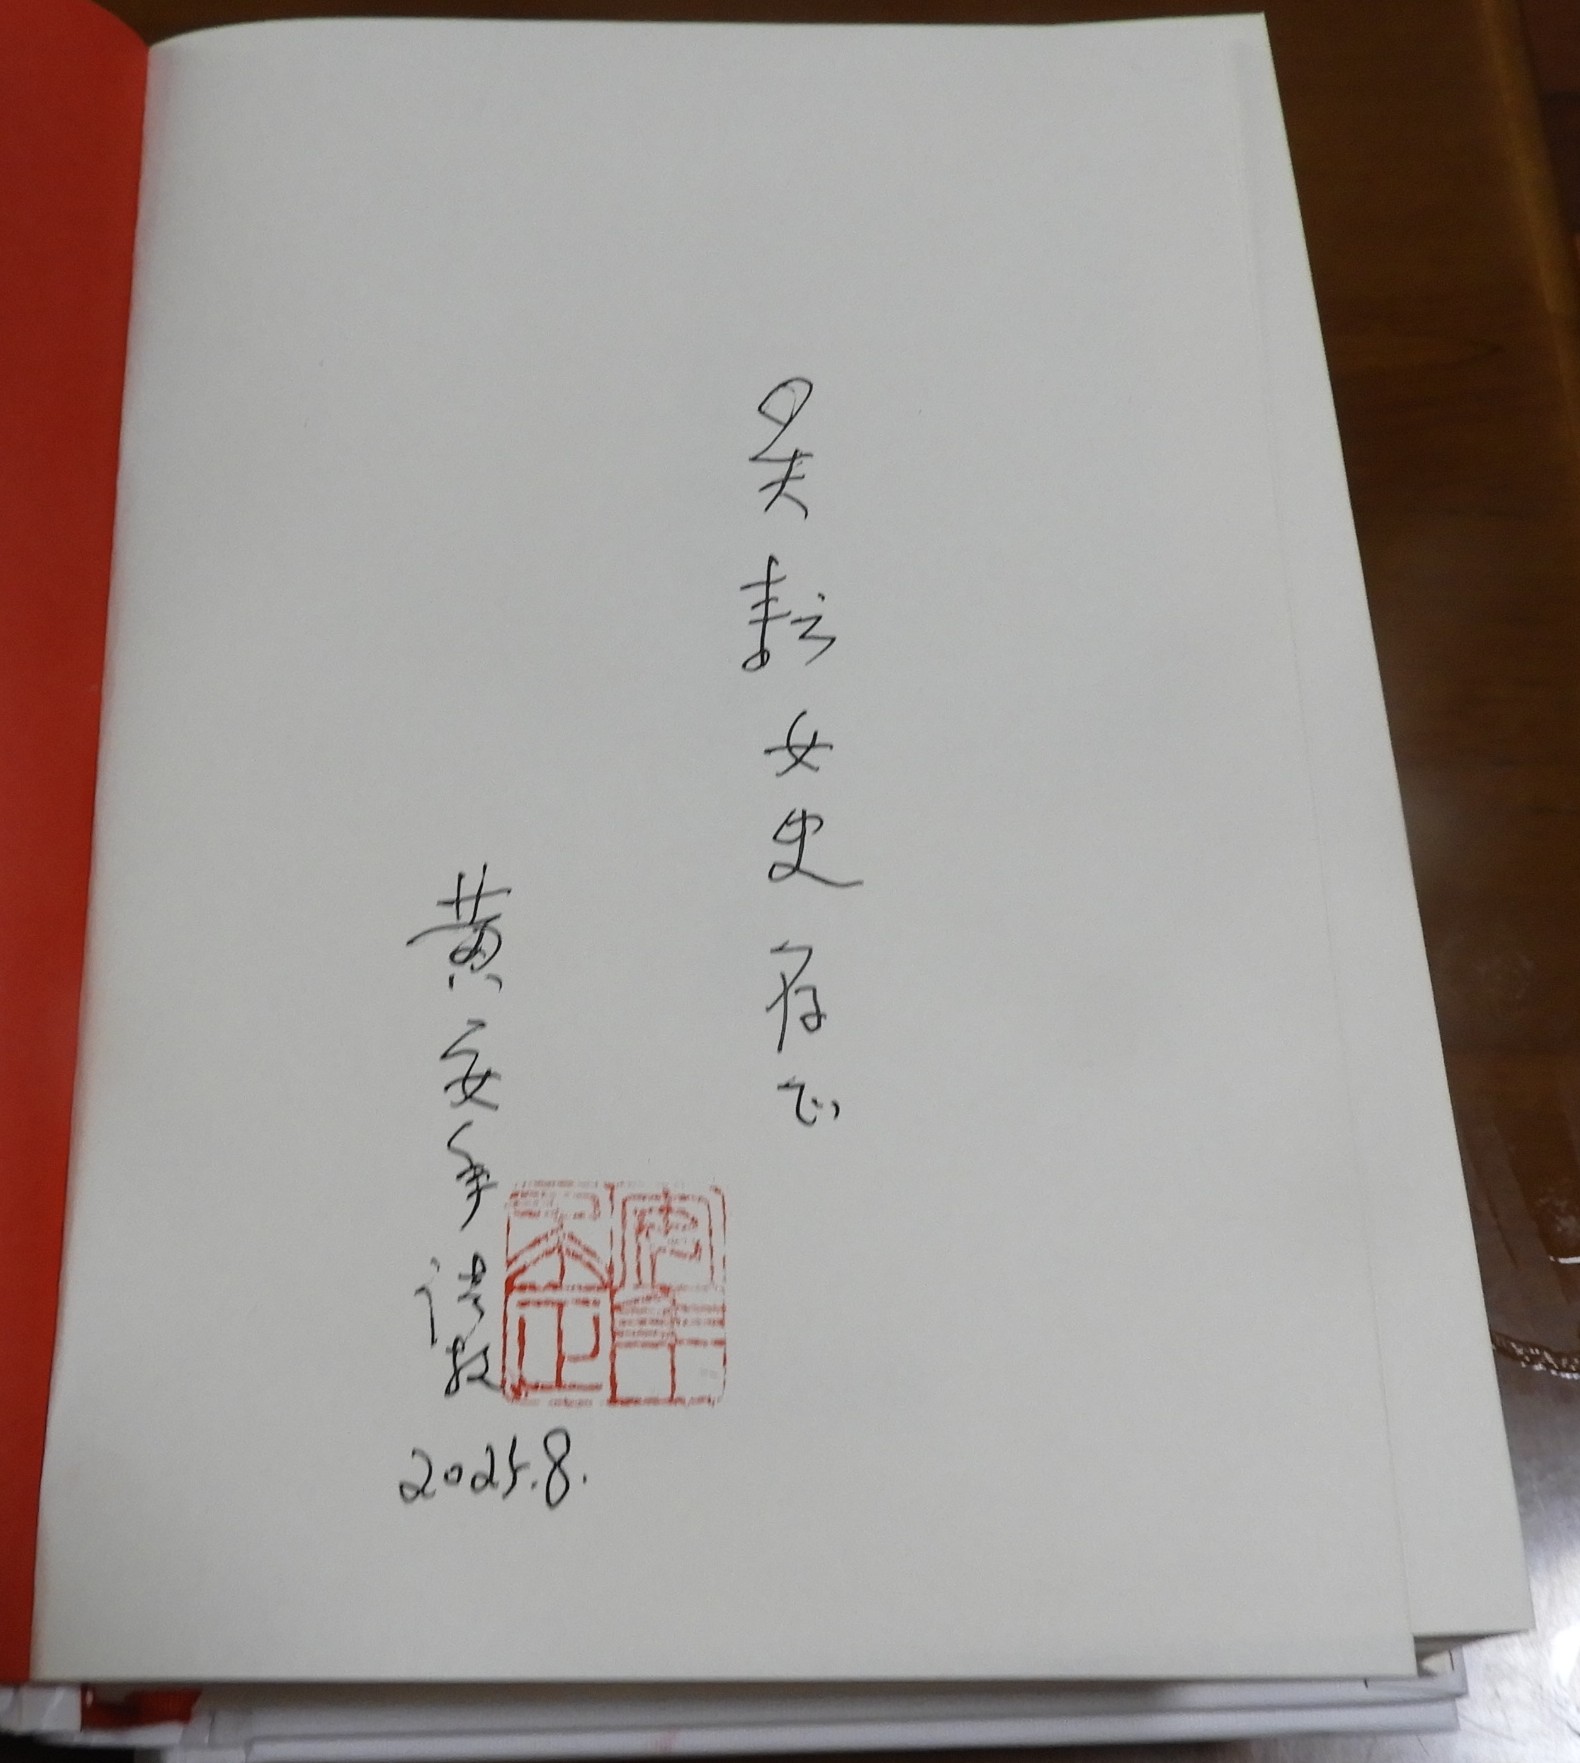 吴耘女史存正
黄安年请教
2025.8.